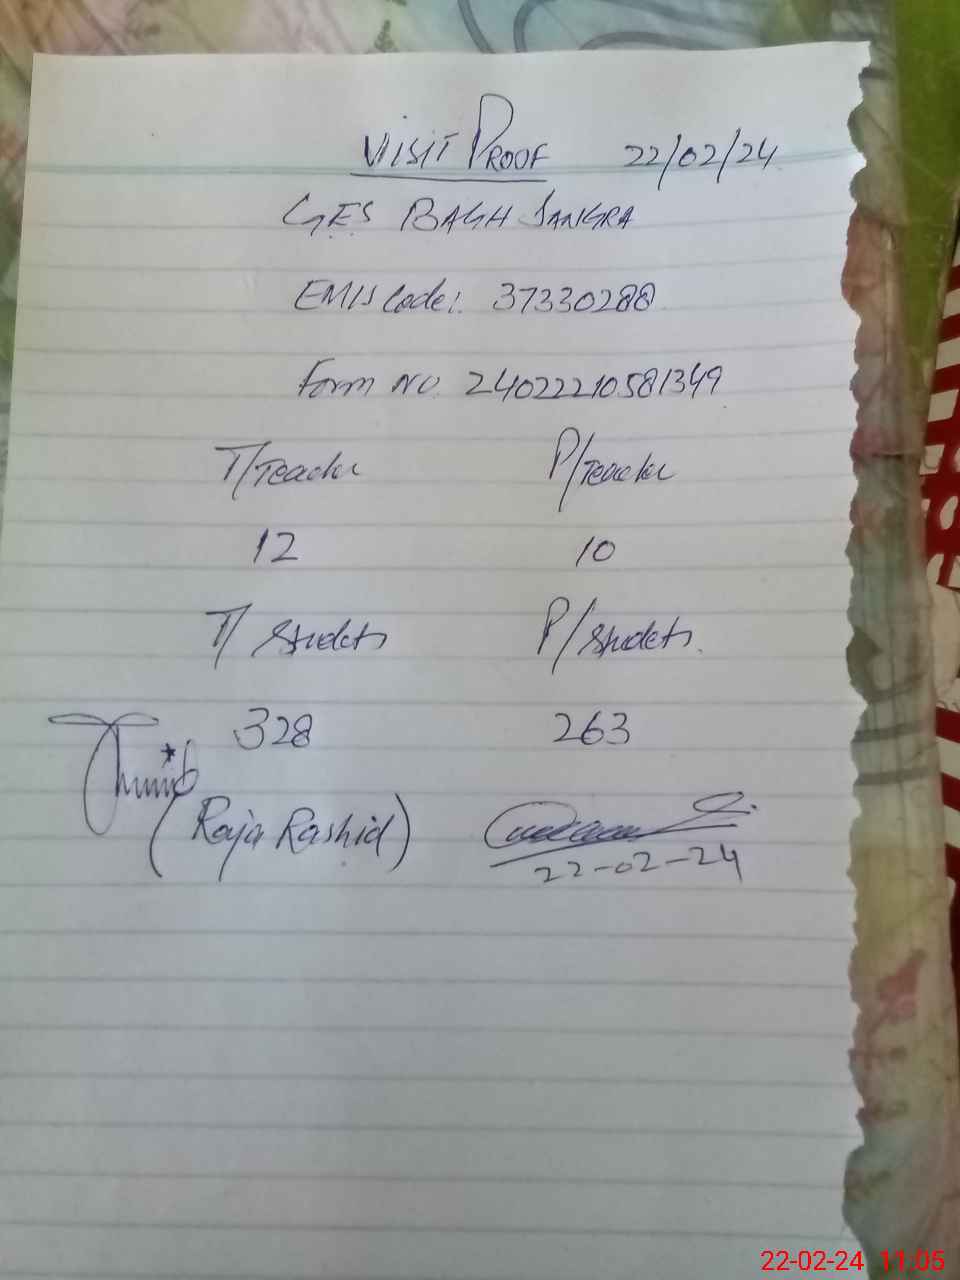 VISIT PROOF 22/02/24
GES BAGH SANGRA
EMIS Code: 37330288
Form NO. 24022210581349
T/Teacher P/Teacher
12 10
T/Students P/Students.
328 263
(Raja Rashid)
22-02-24
22-02-24 11:05